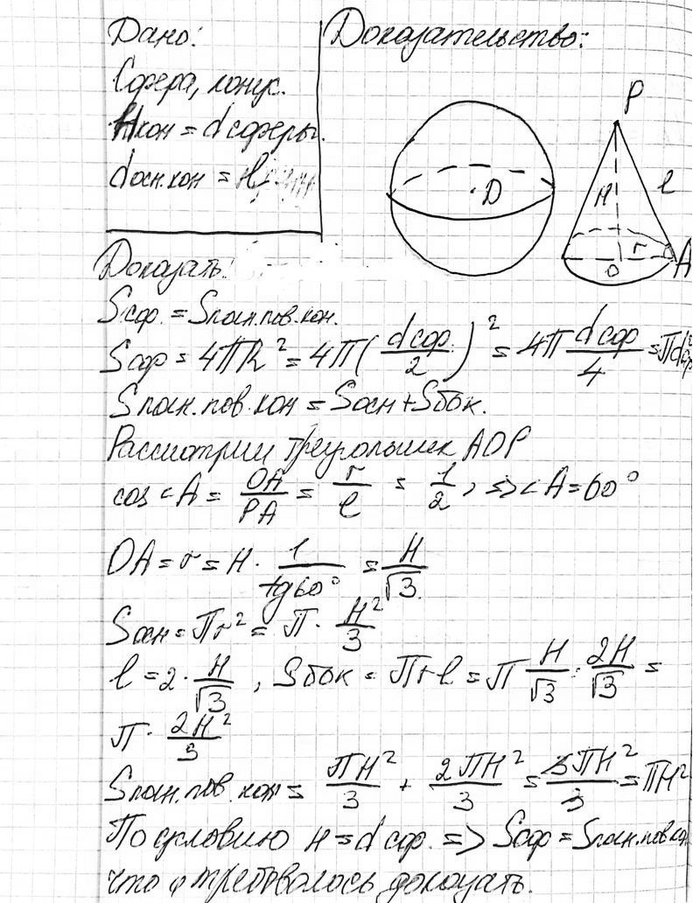 Дано:
Доказательство:
Сфера, конус.
Hкон = dсферы.
dосн.кон =
D
P
H
l
r
O
A
Доказать:
Sсф. = Sполн.пов.кон.
Sсф = 4πR² = 4π(dсф./2)² = 4π dсф/4 = πd²сф
Sполн.пов.кон = Sосн + Sбок.
Рассмотрим треугольник AOP
cos<A = OA/PA = r/l = 1/2, => <A = 60°
OA = r = H · 1/tg60° = H/√3
Sосн = πr² = π · H²/3
l = 2 · H/√3, Sбок = πrl = π H/√3 · 2H/√3 =
π · 2H²/3
Sполн.пов.кон = πH²/3 + 2πH²/3 = 3πH²/3 = πH²
По условию H = dсф. => Sсф = Sполн.пов.кон
что и требовалось доказать.